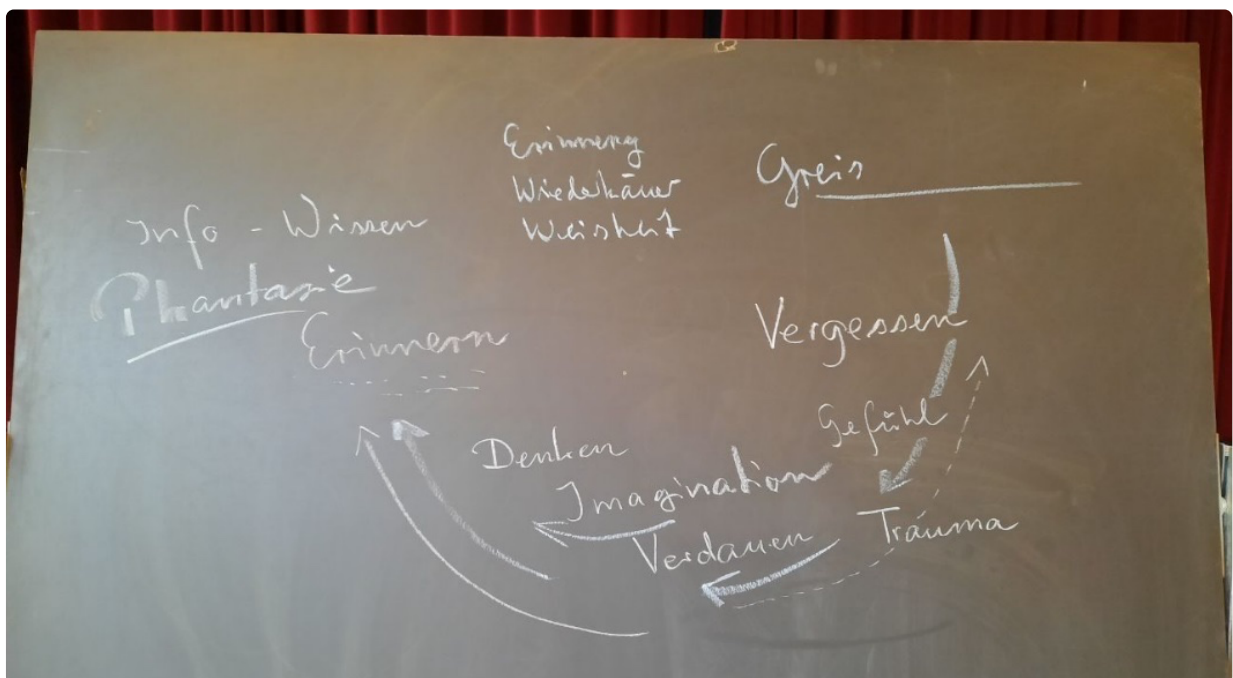 Erinnerg
Wiederkäuer
Weisheit
Greis
Info - Wissen
Phantasie
Erinnern
Vergessen
Gefühl
Denken
Imagination
Verdauen
Trauma